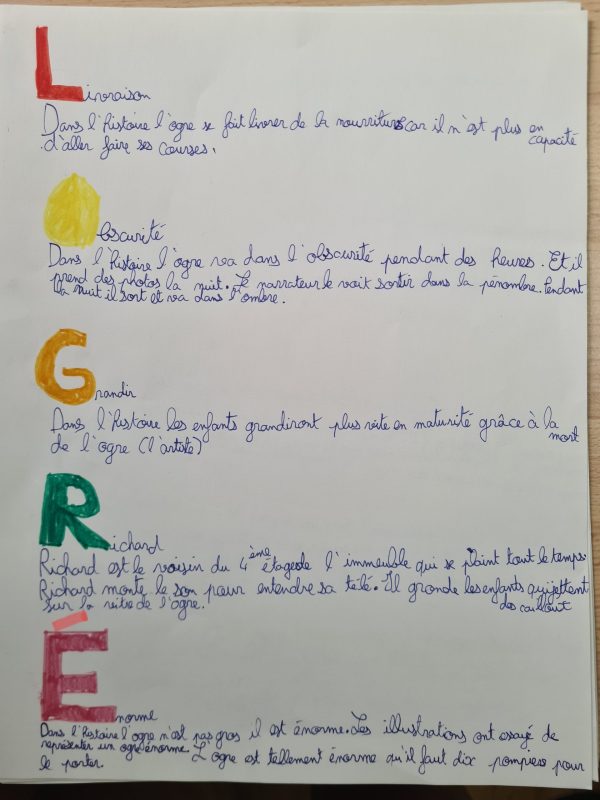 Livraison
Dans l'histoire l'ogre se fait livrer de la nourriture car il n'est plus en capacité
d'aller faire ses courses.
Obscurité
Dans l'histoire l'ogre va dans l'obscurité pendant des heures. Et il
prend des photos la nuit. Le narrateur le voit sortir dans la pénombre. Pendant
la nuit il sort et va dans l'ombre.
Grandir
Dans l'histoire les enfants grandiront plus vite en maturité grâce à la mort
de l'ogre (l'artiste)
Richard
Richard est le voisin du 4ème étage de l'immeuble qui se plaint tout le temps.
Richard monte le son pour entendre sa télé. Il gronde les enfants qui jettent des cailloux
sur la vitre de l'ogre.
Énorme
Dans l'histoire l'ogre n'est pas gros il est énorme. Les illustrations ont essayé de
représenter un ogre énorme. L'ogre est tellement énorme qu'il faut dix pompiers pour
le porter.